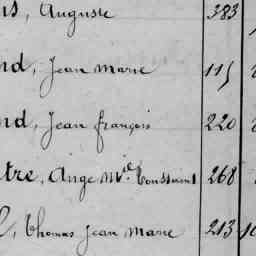 ns, Auguste 383
nd, Jean Marie 115
nd, Jean françois 220
tre, Ange Mie Toussaint 268
, Thomas Jean Marie 213